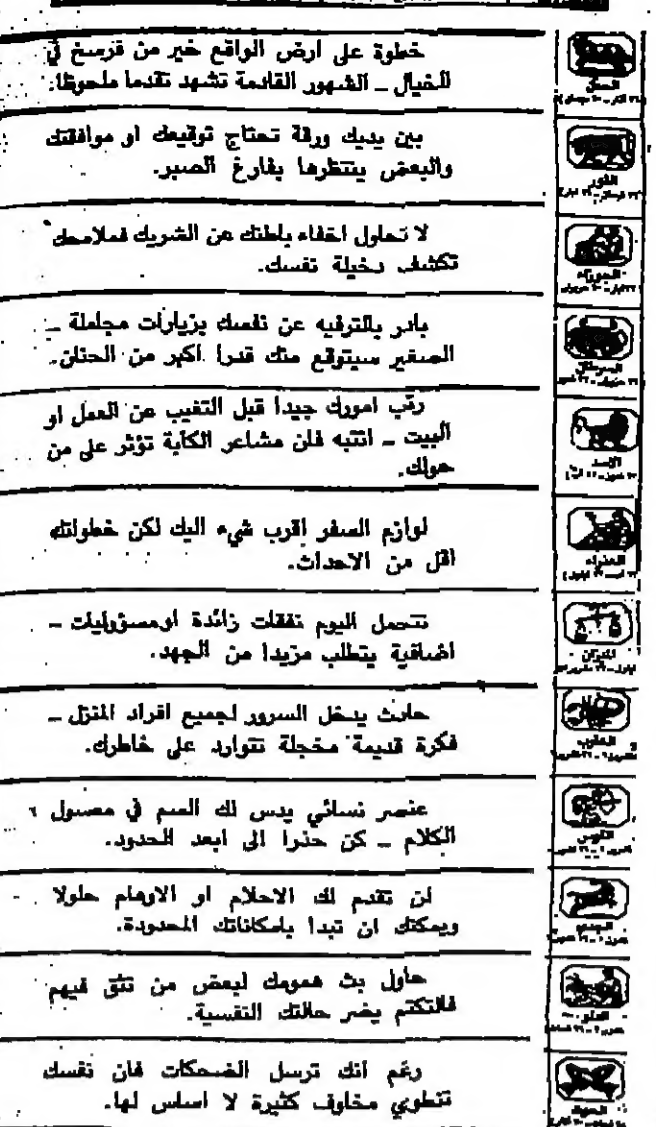 الحمل
خطوة على ارض الواقع خير من فرسخ في
الخيال ـ الشهور القادمة تشهد تقدما ملحوظا.
الثور
بين يديك ورقة تحتاج توقيعك او موافقتك
والبعض ينتظرها بفارغ الصبر.
الجوزاء
لا تحاول اخفاء باطنك عن الشريك فملامحك
تكشف دخيلة نفسك.
السرطان
بادر بالترفيه عن نفسك بزيارات مجاملة ـ
الصغير سيتوقع منك قدرا اكبر من الحنان.
الاسد
رتب امورك جيدا قبل التغيب عن العمل او
البيت ـ انتبه فان مشاعر الكآبة تؤثر على من
حولك.
العذراء
لوازم السفر اقرب شيء اليك لكن خطواتك
اقل من الاحداث.
الميزان
تتحمل اليوم نفقات زائدة اومسؤوليات ـ
اضافية يتطلب مزيدا من الجهد.
العقرب
حادث يدخل السرور لجميع افراد المنزل ـ
فكرة قديمة مخجلة تتوارد على خاطرك.
القوس
عنصر نسائي يدس لك السم في معسول
الكلام ـ كن حذرا الى ابعد الحدود.
الجدي
لن تقدم لك الاحلام او الاوهام حلولا
ويمكنك ان تبدا بامكاناتك المحدودة.
الدلو
حاول بث همومك لبعض من تثق فيهم
فالتكتم يضر حالتك النفسية.
الحوت
رغم انك ترسل الضحكات فان نفسك
تنطوي مخاوف كثيرة لا اساس لها.